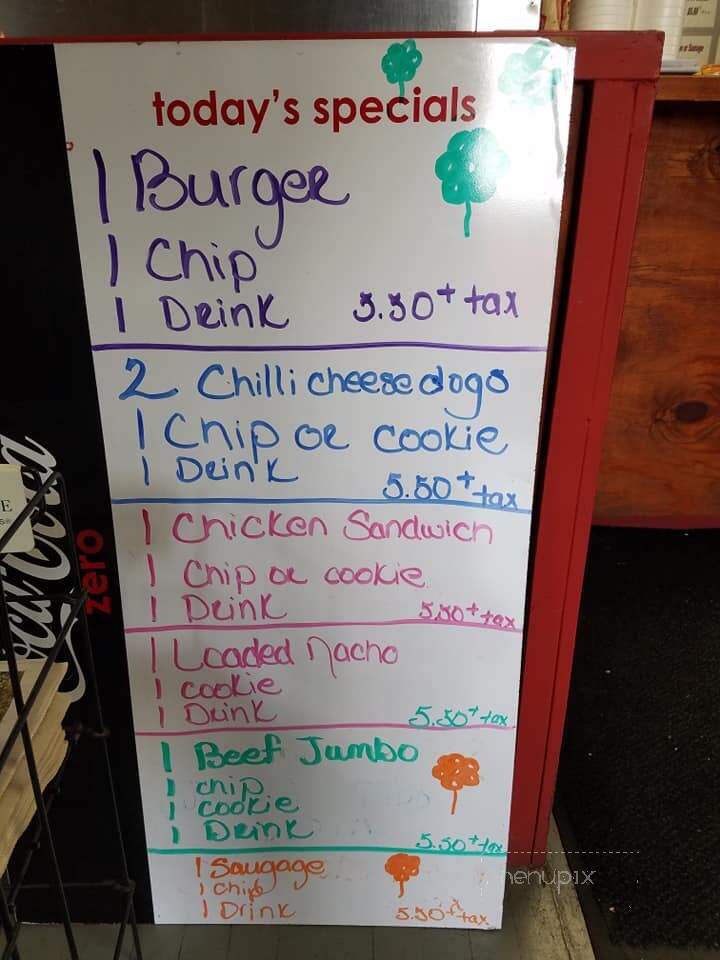 today's specials
1 Burger
1 Chip
1 Drink 5.50 + tax
2 Chilli cheese dogs
1 Chip or cookie
1 Drink 5.50 + tax
1 Chicken Sandwich
1 Chip or cookie
1 Drink 5.50 + tax
1 Loaded Nacho
1 cookie
1 Drink 5.50 + tax
1 Beef Jumbo
1 chip
1 cookie
1 Drink 5.50 + tax
1 Saugage
1 Chip
1 Drink 5.50 + tax
zero
menupix